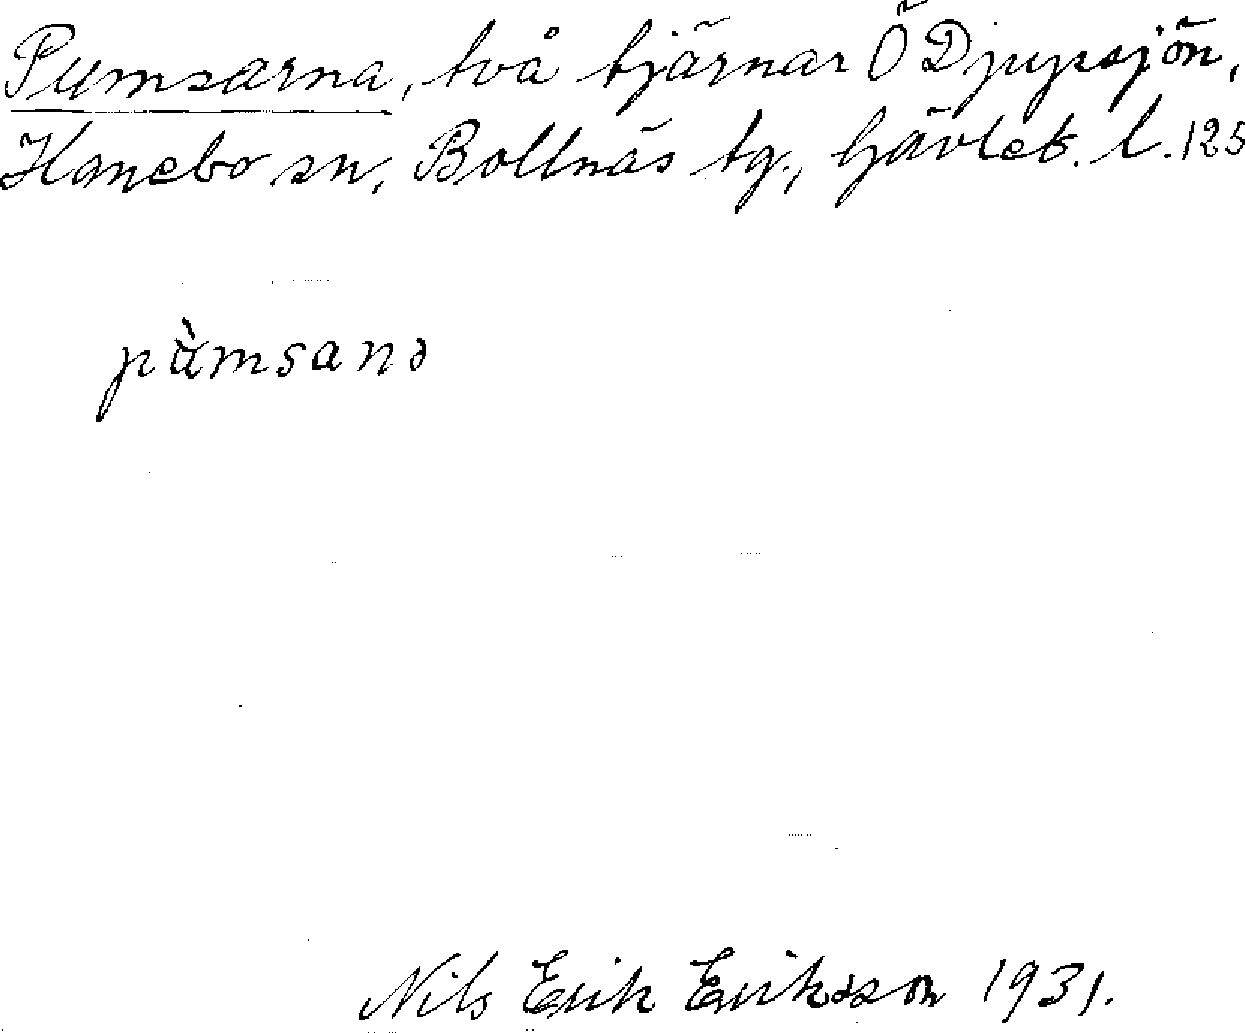 Pumsarna, två tjärnar Ö Djupsjön,
Hanebo sn, Bollnäs tg., Gävleb. l. 125
pùmsanə
Nils Erik Eriksson 1931.